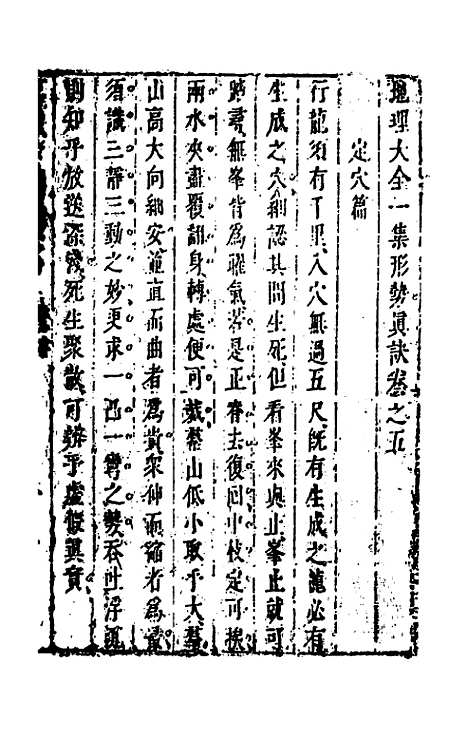 地理大全一集形勢眞訣卷之五
定穴篇
行龍須有千里入穴無過五尺既有生成之龍必有
生成之穴細認其間生死但看峯來與止峯止就可
踏尋無峯皆爲離氣若是正脊去復回中枝定可
兩水夾盡覆翻身轉處便可裁羣山低小取乎大羣
山高大向細安並直而曲者爲貴衆伸而縮者爲
須識三靜三動之妙更求一凸一彎之勢吞吐浮
則知乎放送深淺死生聚散可辨乎虛假眞